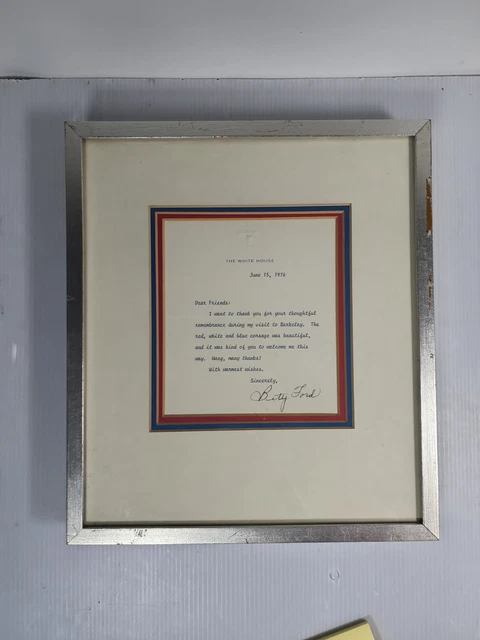 THE WHITE HOUSE
June 15, 1976
Dear Friends:
I want to thank you for your thoughtful
remembrance during my visit to Berkeley. The
red, white and blue corsage was beautiful,
and it was kind of you to welcome me this
way. Many, many thanks!
With warmest wishes.
Sincerely,
Betty Ford